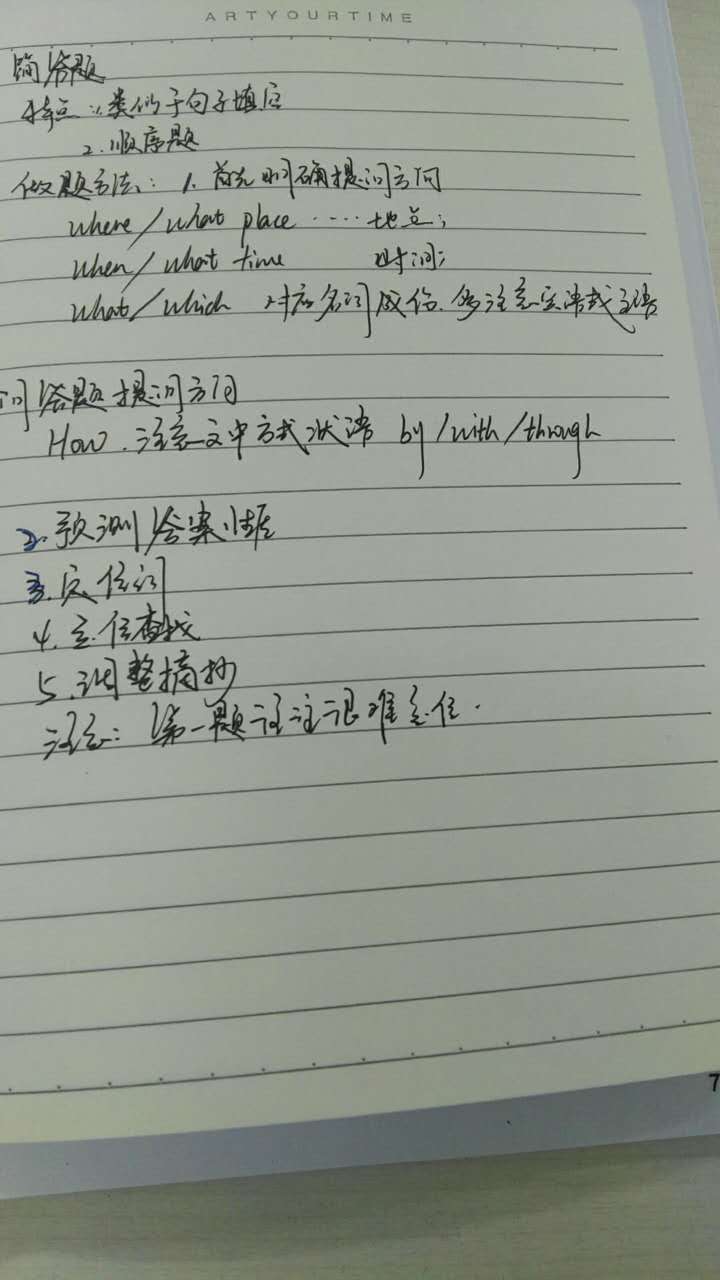 ARTYOURTIME
简答题
特点:1.类似于句子填空
2.顺序题
做题方法:1.首先明确提问方向
where/what place ····· 地点;
when/what time 时间;
what/which 对应名词成份.多注意宾语或主语
问答题提问方向
How.注意文中方式状语 by/with/through
2.预测答案性质
3.定位词
4.定位查找
5.调整摘抄
注意:第一题往往很难定位.
7